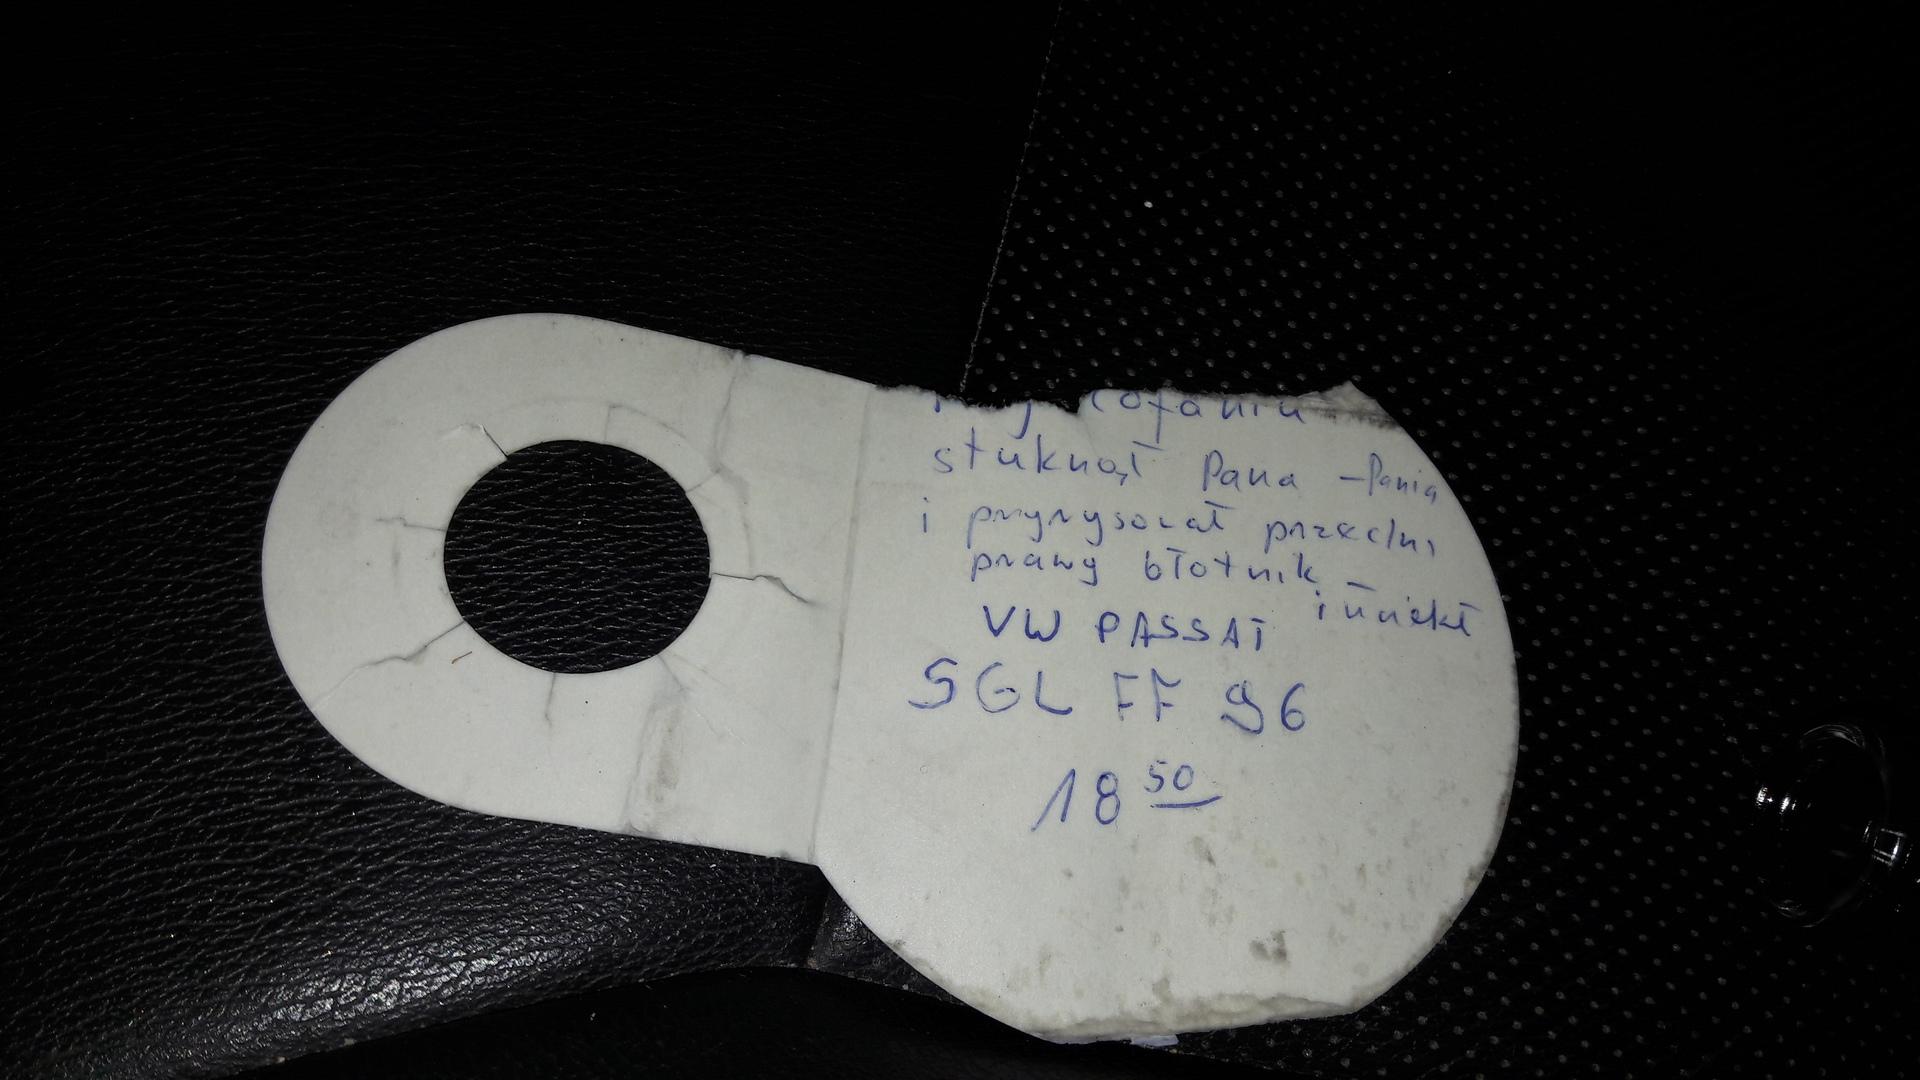 cofaniu
stuknął Pana - Panią
i przyrysował przedni
prawy błotnik i uciekł
VW PASSAT
SGL FF 96
18 50